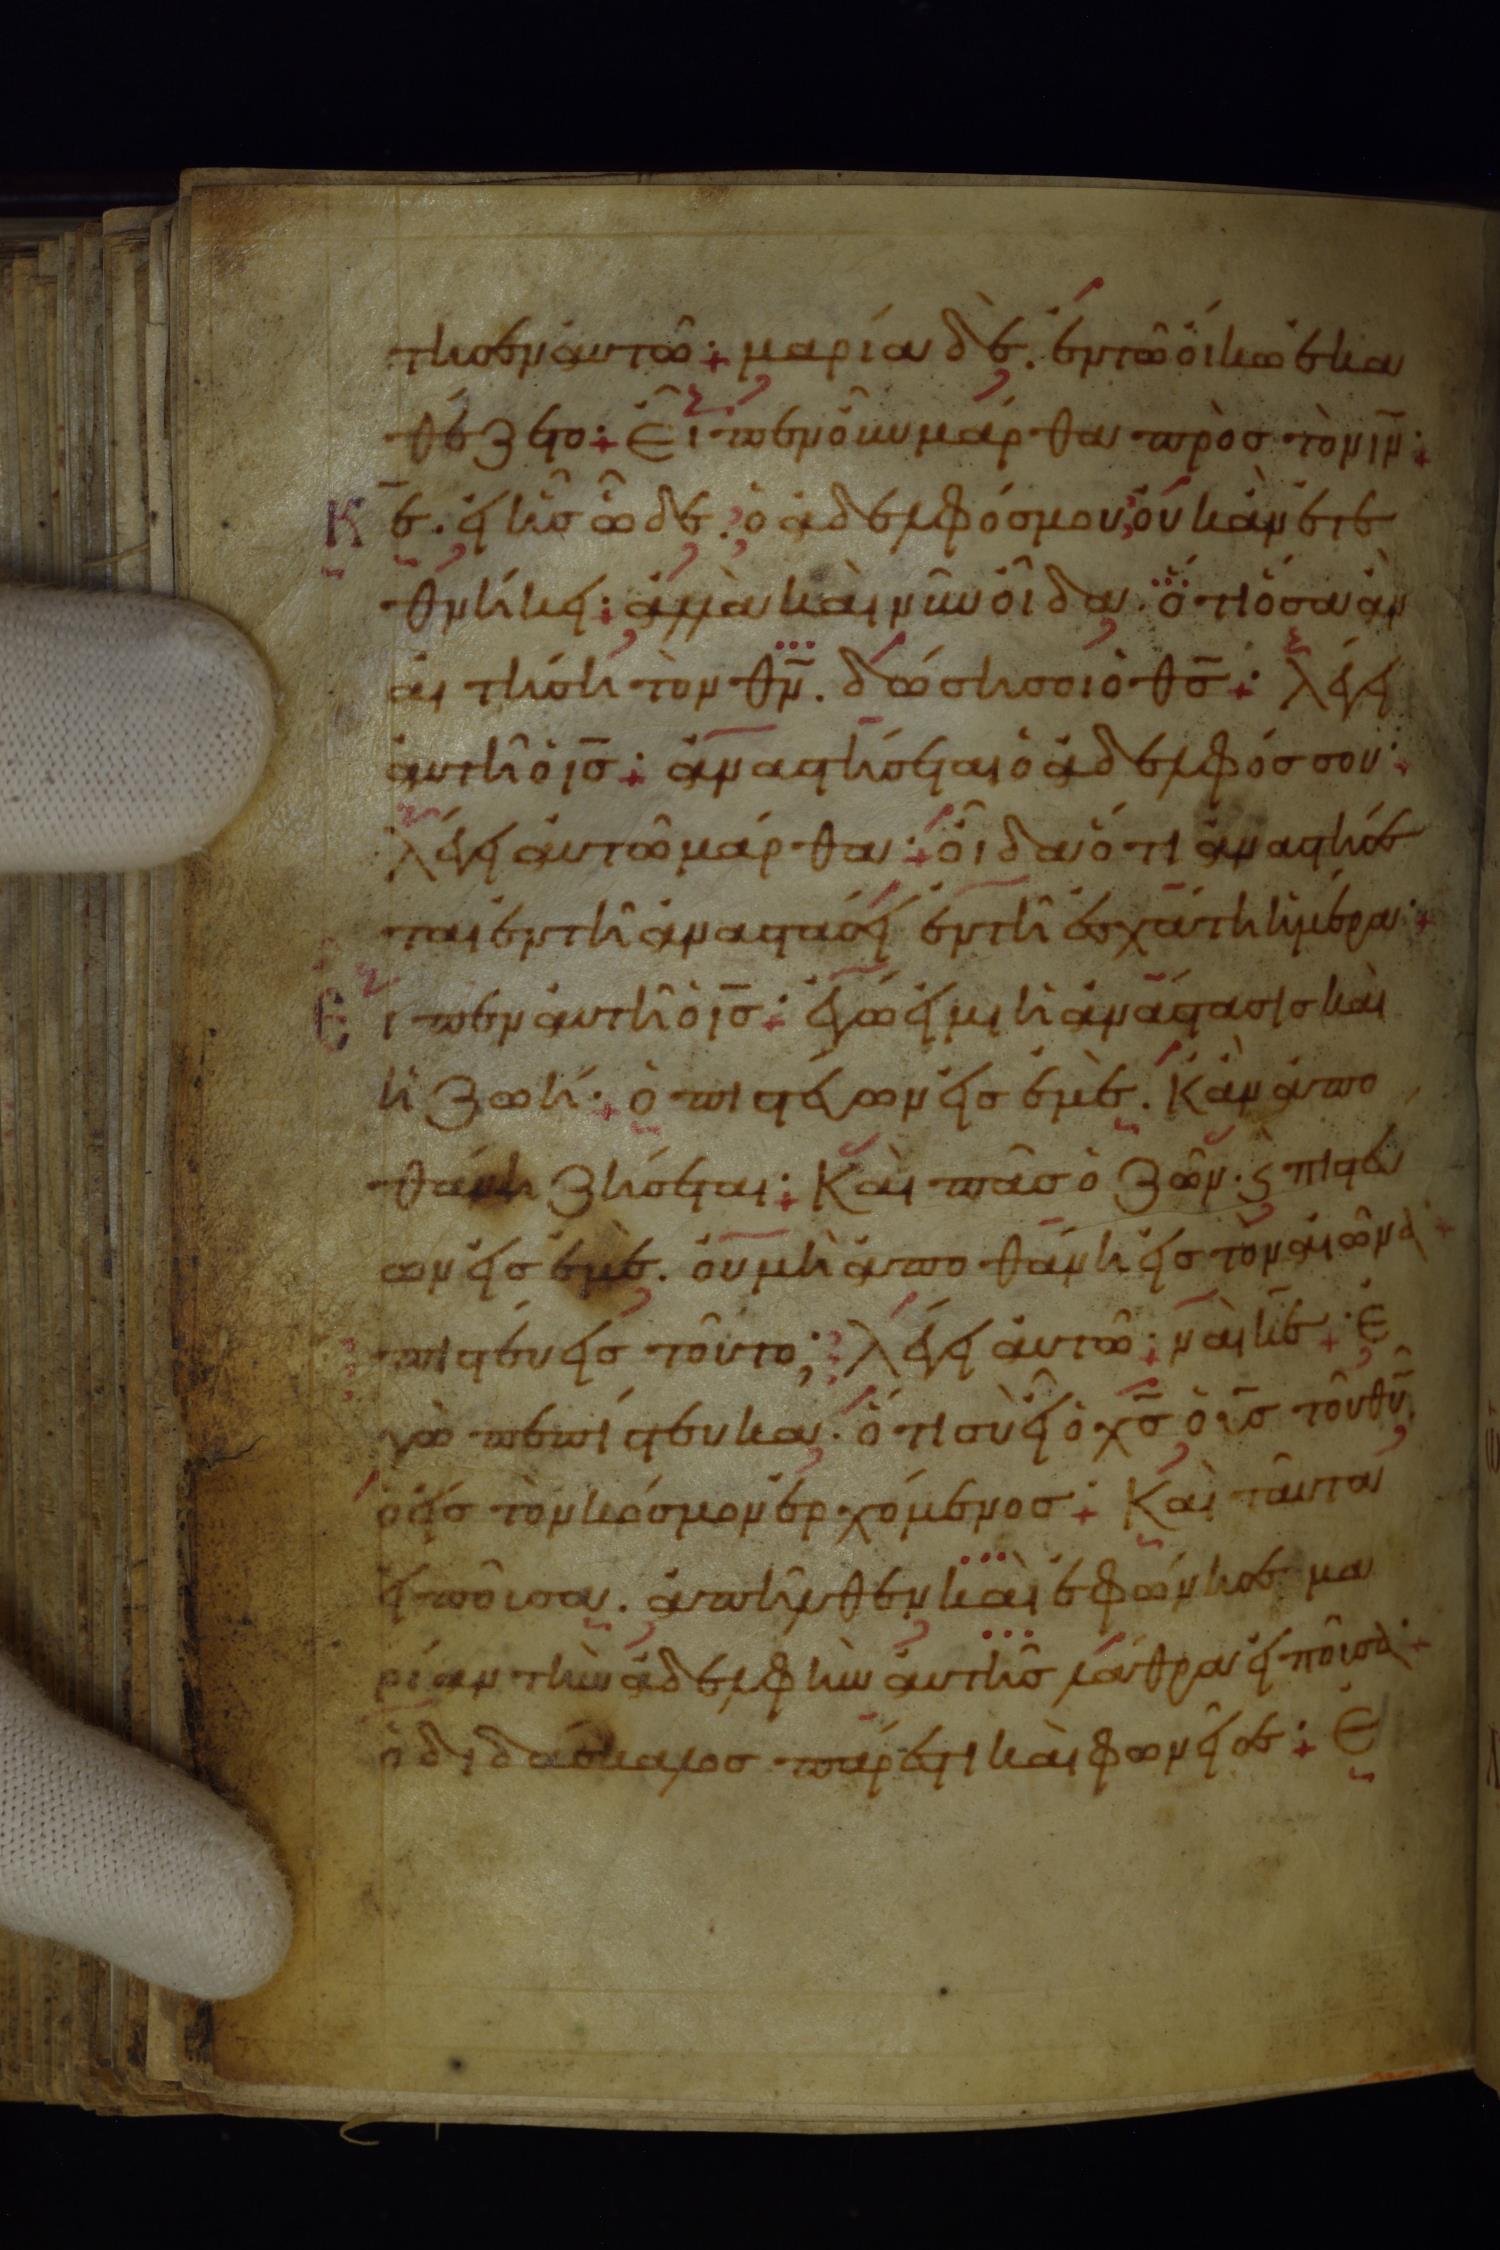 τησεν αὐτῶ: μαρία δὲ. ἐν τῶ οἴκω ἐκα
θέζετο: Εἶπεν οὖν μάρθα πρὸσ τὸν ιν̄:
Κε̄. εἰ ἦσ ὧδε. ὁ ἀδελφόσ μου οὐκ ἂν ἐτε
θνήκει: ἀλλὰ καὶ νῦν οἶδα. ὅτι ὅσα ἂν
αἰτήση τὸν θν̄. δώση σοι ὁ θσ̄: λέγει
αὐτῆ ὁ ισ̄: ἀναστήσεται ὁ ἀδελφόσ σου:
λέγει αὐτῶ μάρθα: οἶδα ὅτι ἀναστήσε
ται ἐν τῆ ἀναστάσει ἐν τῆ ἐσχάτη ἡμέρα:
Εἶπεν αὐτῆ ὁ ισ̄: ἐγώ εἰμι ἡ ἀνάστασισ καὶ
ἡ ζωή: ὁ πιστεύων εἰσ ἐμὲ. κἂν ἀπο
θάνη ζήσεται: Καὶ πᾶσ ὁ ζῶν. ϛ πιστεύ
ων εἰσ ἐμὲ. οὐ μὴ ἀποθάνη εἰσ τὸν αἰῶνα:
πιστεύεισ τοῦτο; λέγει αὐτῶ: ναὶ κε̄: ἐ
γὼ πεπίστευκα. ὅτι σὺ εἶ ὁ χσ̄ ὁ υσ̄ τοῦ θῡ.
ὁ εἰσ τὸν κόσμον ἐρχόμενοσ: Καὶ ταῦτα
εἰποῦσα. ἀπῆλθεν καὶ ἐφώνησε μα
ρίαν τὴν ἀδελφὴν αὐτῆσ λάθρα εἰποῦσα:
ὁ διδάσκαλοσ πάρεστι καὶ φωνεῖ σε: Ἐ